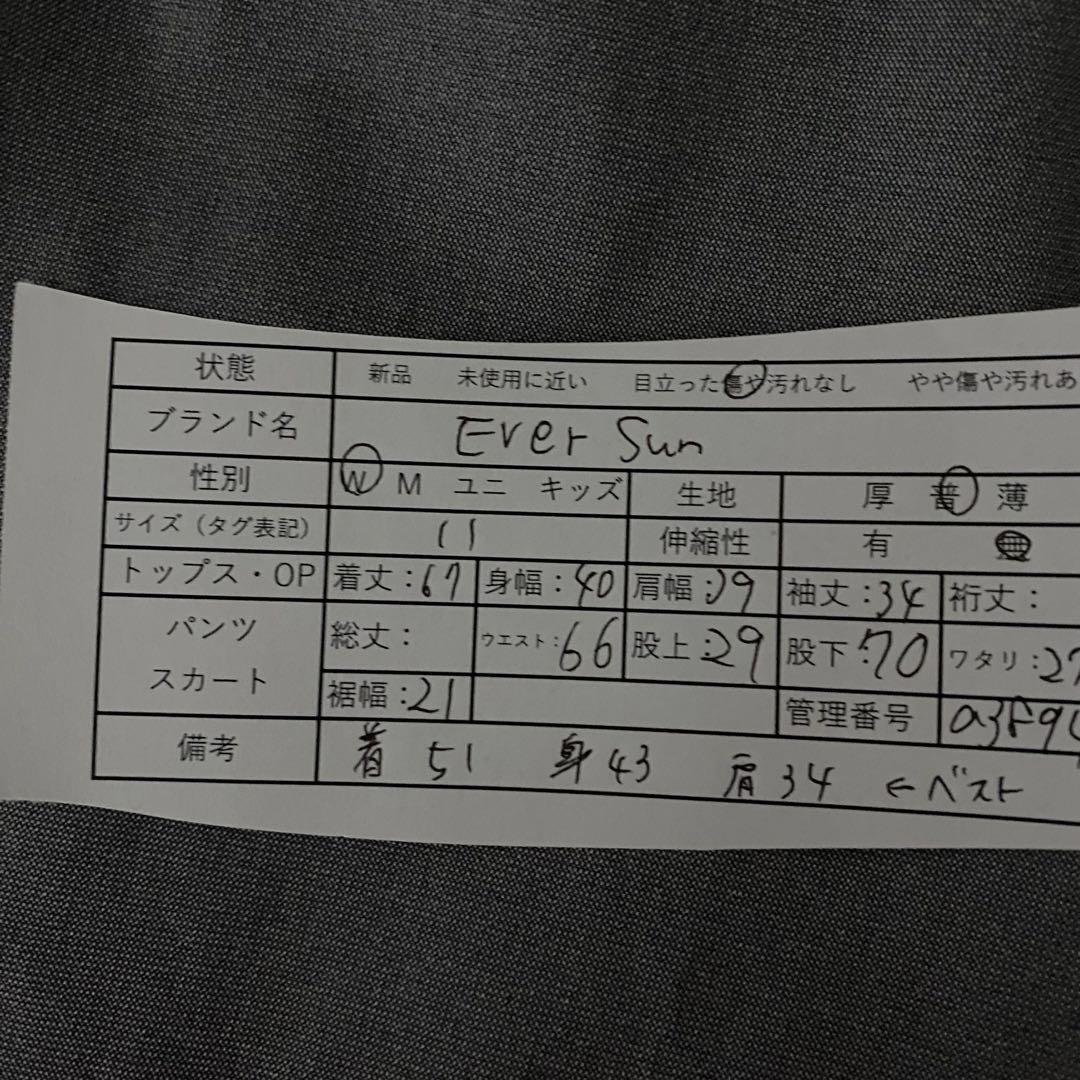 状態 新品 未使用に近い 目立った傷や汚れなし やや傷や汚れあ
ブランド名 Ever Sun
性別 W M ユニ キッズ 生地 厚 普 薄
サイズ（タグ表記） 11 伸縮性 有 無
トップス・OP 着丈：67 身幅：40 肩幅：39 袖丈：34 裄丈：
パンツ スカート 総丈： ウエスト：66 股上：29 股下：70 ワタリ：27
裾幅：21 管理番号
備考 着 51 身 43 肩 34 ←ベスト